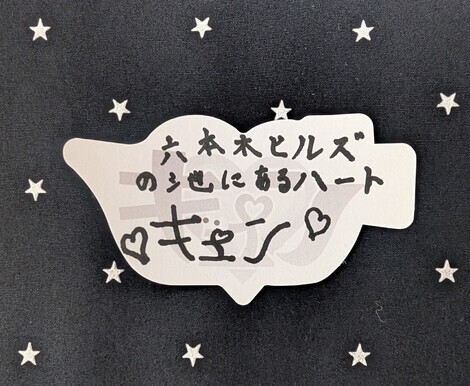 六本木ヒルズ
の池にあるハート
♡ギュン♡